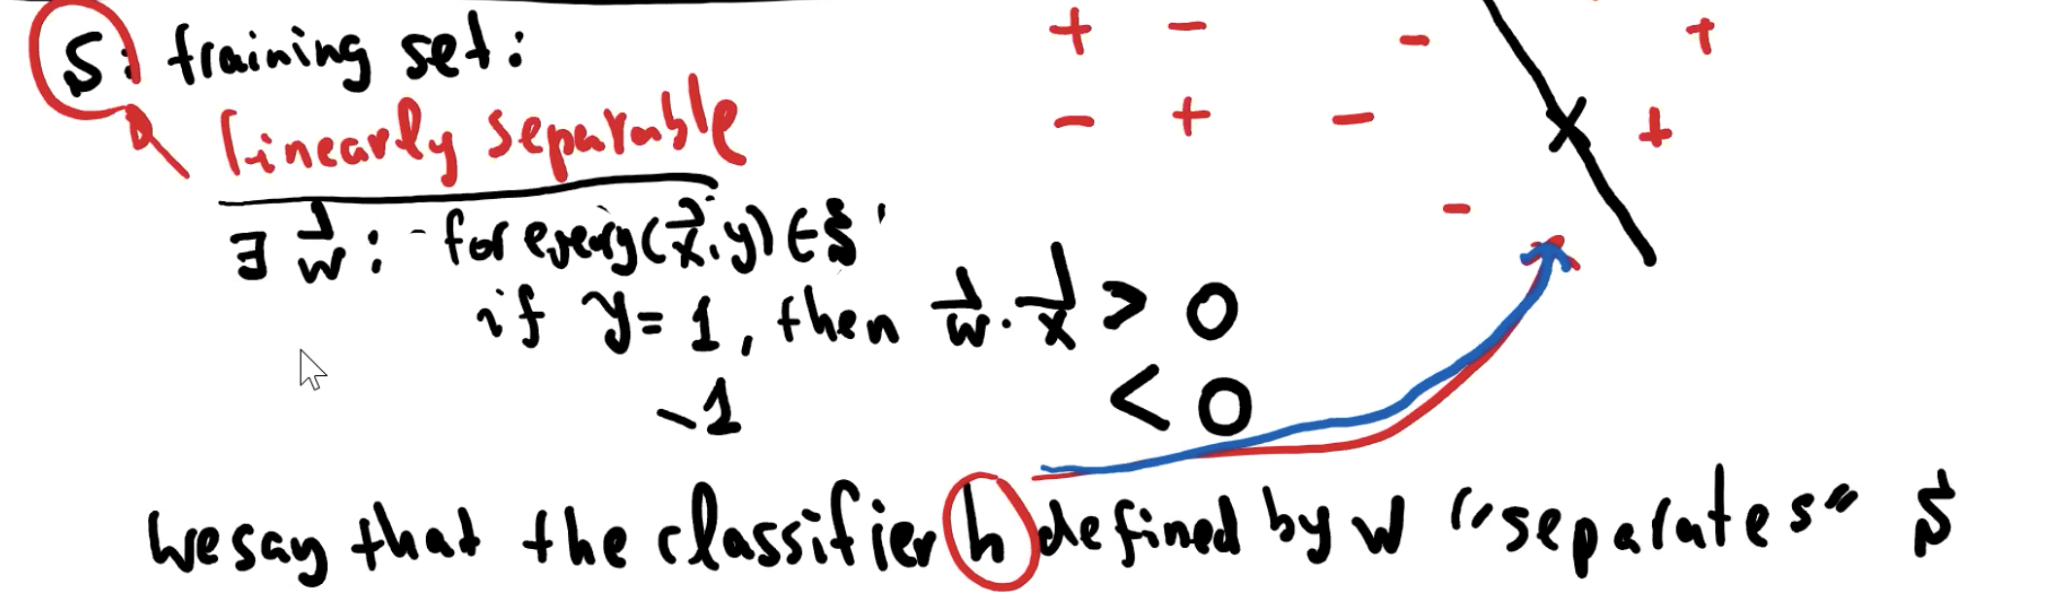 S: training set:
linearly separable
∃ w⃗ : for every (x⃗, y) ∈ S
if y = 1, then w⃗ · x⃗ > 0
-1 < 0
We say that the classifier h defined by w "separates" S
+ - - +
- + - +
-